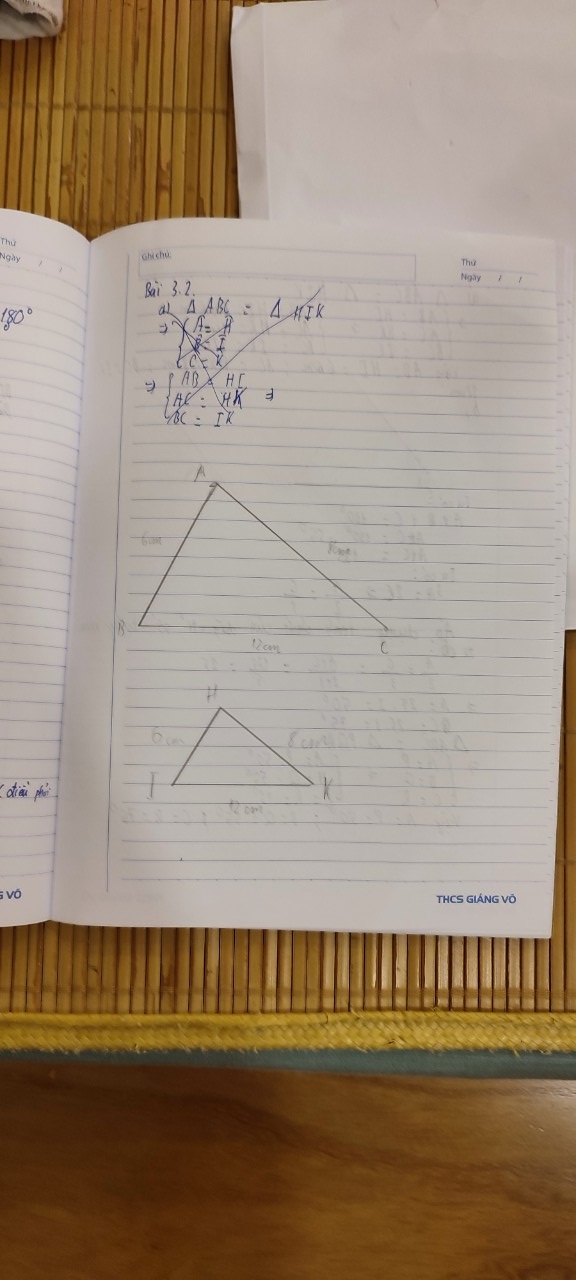 Thứ
Ngày / /
180°
điều phải
G VÕ
Ghi chú:
Thứ
Ngày / /
Bài 3.2.
a) Δ ABC = Δ HIK
=> { A = H
B = I
C = K
=> { AB = HI
AC = HK =>
BC = IK
A
6cm
B
12cm
C
H
6cm
8cm
I
K
12cm
THCS GIẢNG VÕ